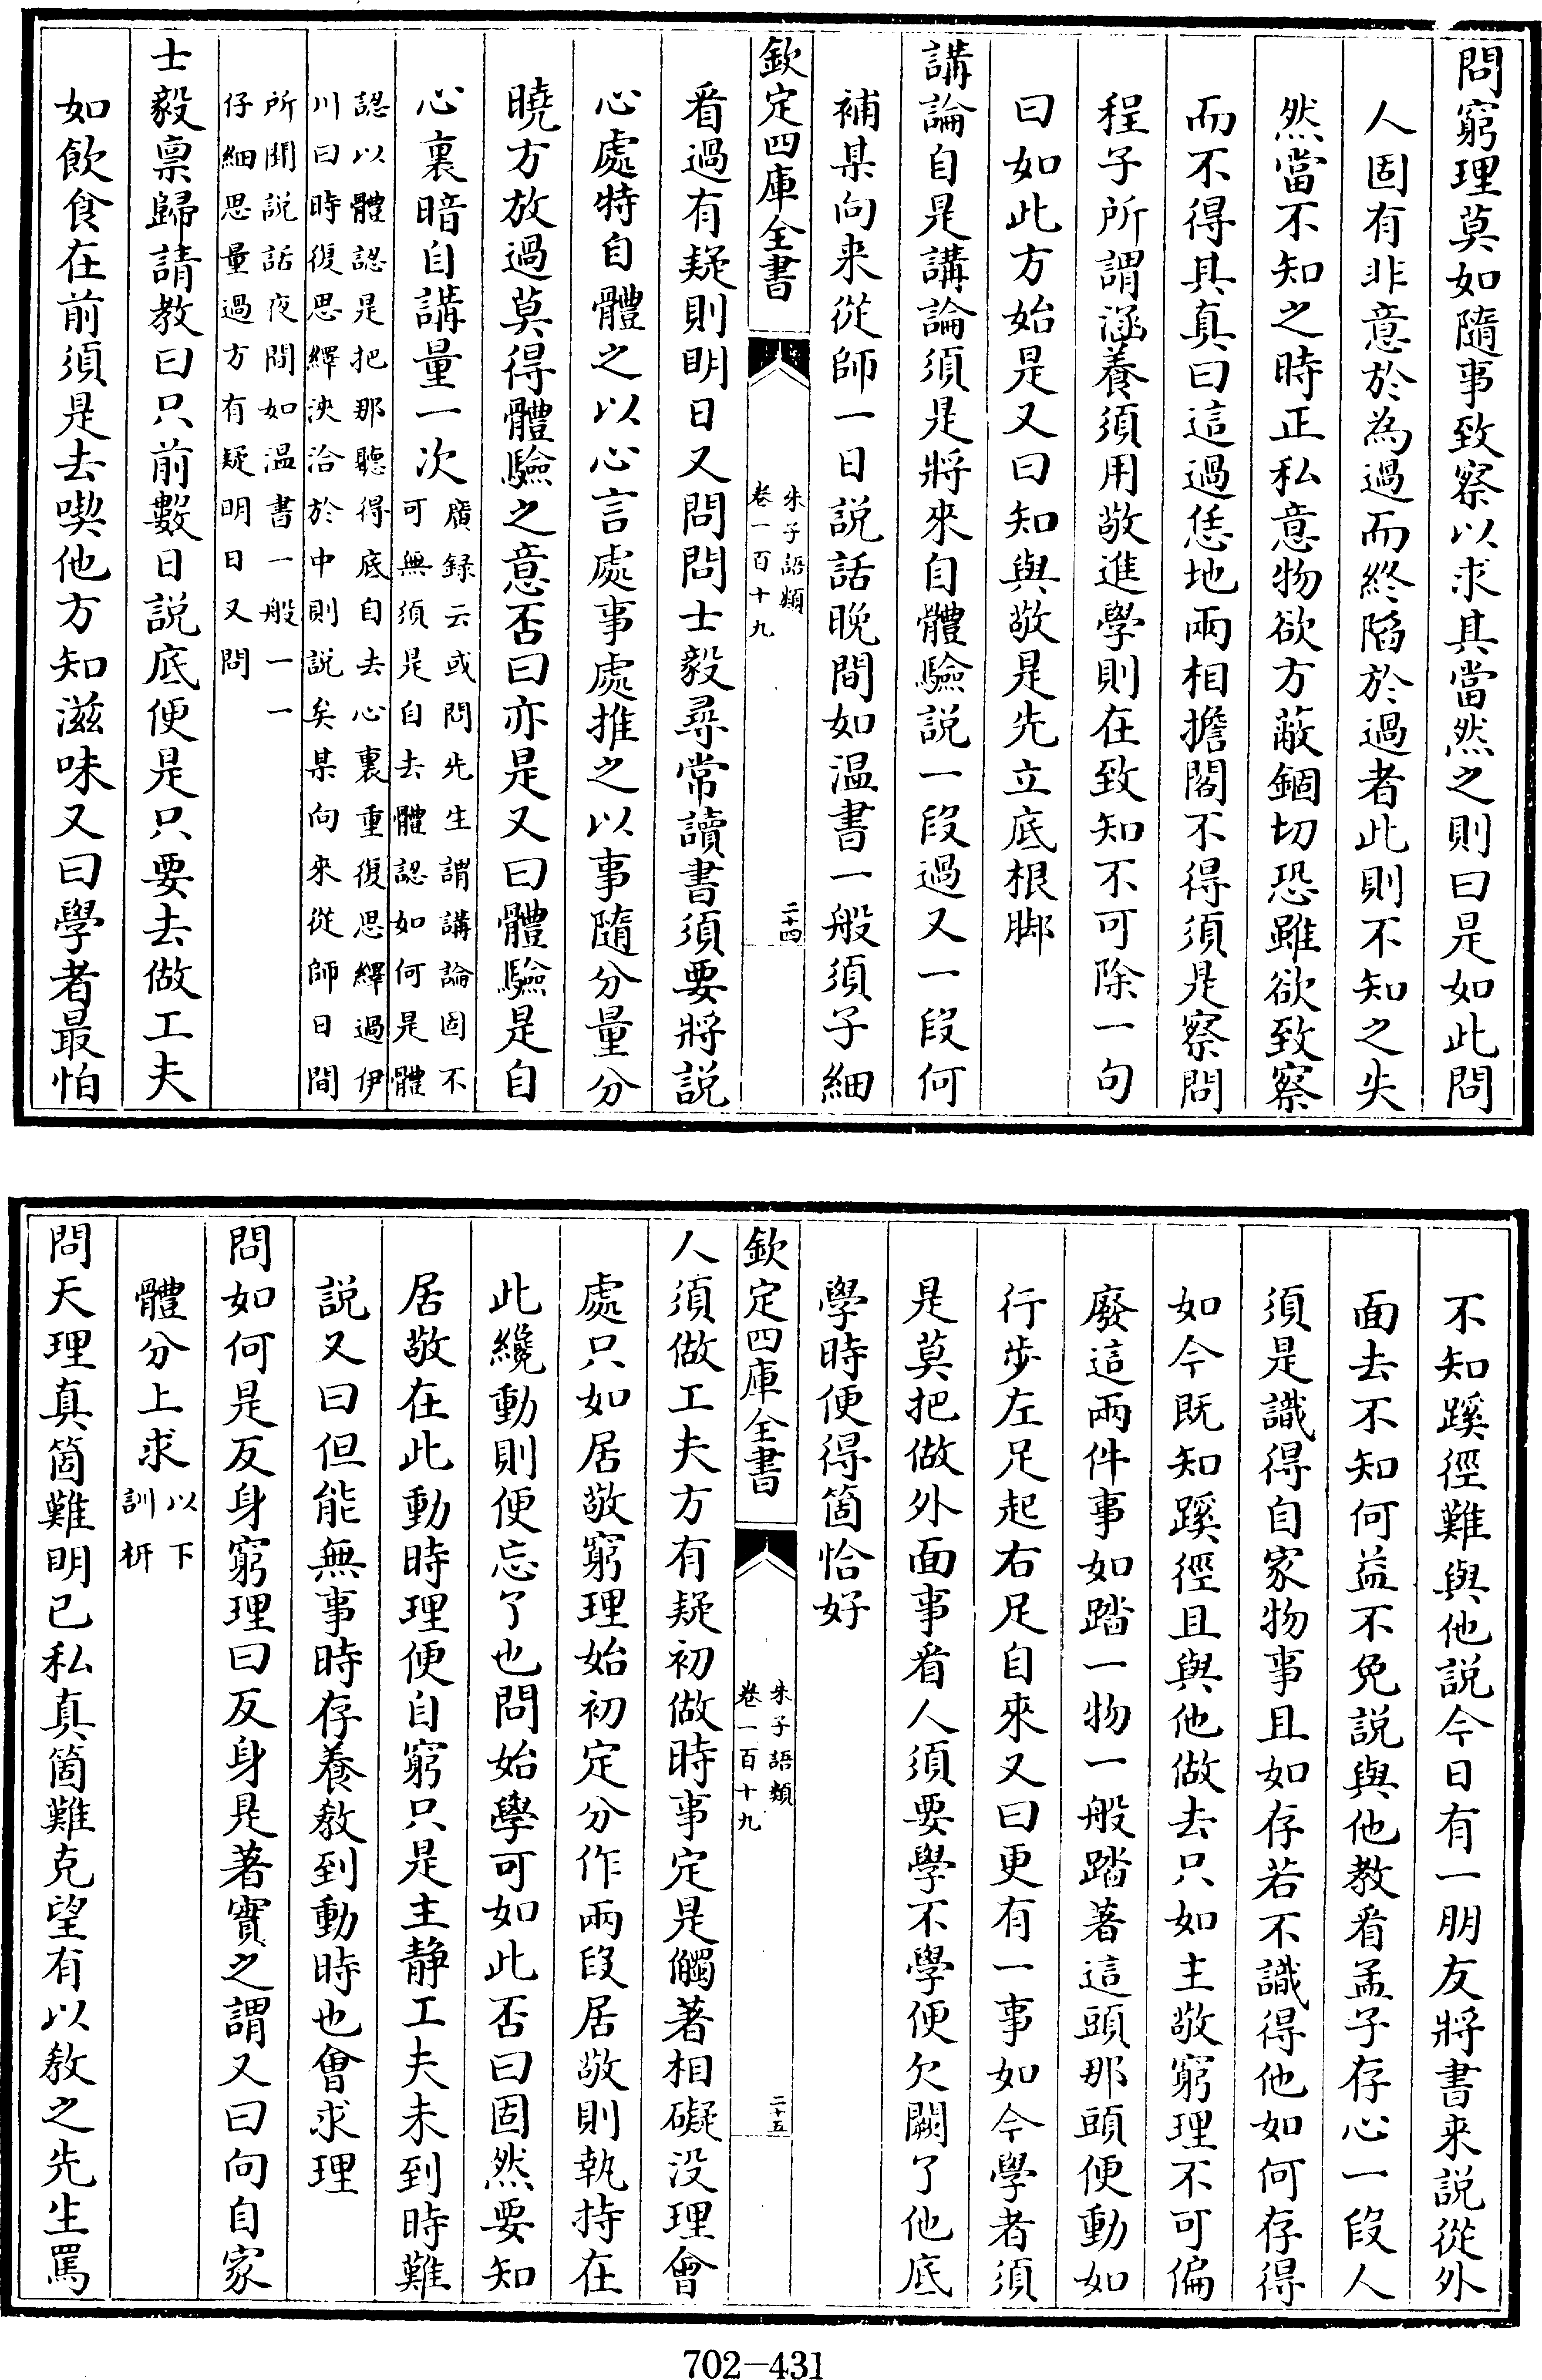 問窮理莫如隨事致察以求其當然之則曰是如此問
人固有非意於為過而終陷於過者此則不知之失
然當不知之時正私意物欲方蔽錮切恐雖欲致察
而不得其真曰這過恁地兩相擔閣不得須是察問
程子所謂涵養須用敬進學則在致知不可除一句
曰如此方始是又曰知與敬是先立底根脚
講論自是講論須是將來自體驗説一段過又一段何
補某向来從師一日説話晩間如温書一般須子細
欽定四庫全書
朱子語類
卷一百十九
二十四
看過有疑則明日又問問士毅尋常讀書須要將説
心處特自體之以心言處事處推之以事隨分量分
曉方放過莫得體驗之意否曰亦是又曰體驗是自
心裏暗自講量一次
廣録云或問先生謂講論固不
可無須是自去體認如何是體
認以體認是把那聽得底自去心裏重復思繹過伊
川曰時復思繹浹洽於中則説矣某向來從師日間
所聞説話夜間如温書一般一一
仔細思量過方有疑明日又問
士毅禀歸請教曰只前數日説底便是只要去做工夫
如飲食在前須是去喫他方知滋味又曰學者最怕
不知蹊徑難與他説今日有一朋友將書来説從外
面去不知何益不免説與他教看孟子存心一段人
須是識得自家物事且如存若不識得他如何存得
如今既知蹊徑且與他做去只如主敬窮理不可偏
廢這兩件事如踏一物一般踏著這頭那頭便動如
行歩左足起右足自來又曰更有一事如今學者須
是莫把做外面事看人須要學不學便欠闕了他底
學時便得箇恰好
欽定四庫全書
朱子語類
卷一百十九
二十五
人須做工夫方有疑初做時事定是觸著相礙没理會
處只如居敬窮理始初定分作兩段居敬則執持在
此纔動則便忘了也問始學可如此否曰固然要知
居敬在此動時理便自窮只是主静工夫未到時難
説又曰但能無事時存養教到動時也會求理
問如何是反身窮理曰反身是著實之謂又曰向自家
體分上求
以下
訓枅
問天理真箇難明已私真箇難克望有以教之先生罵
702—431